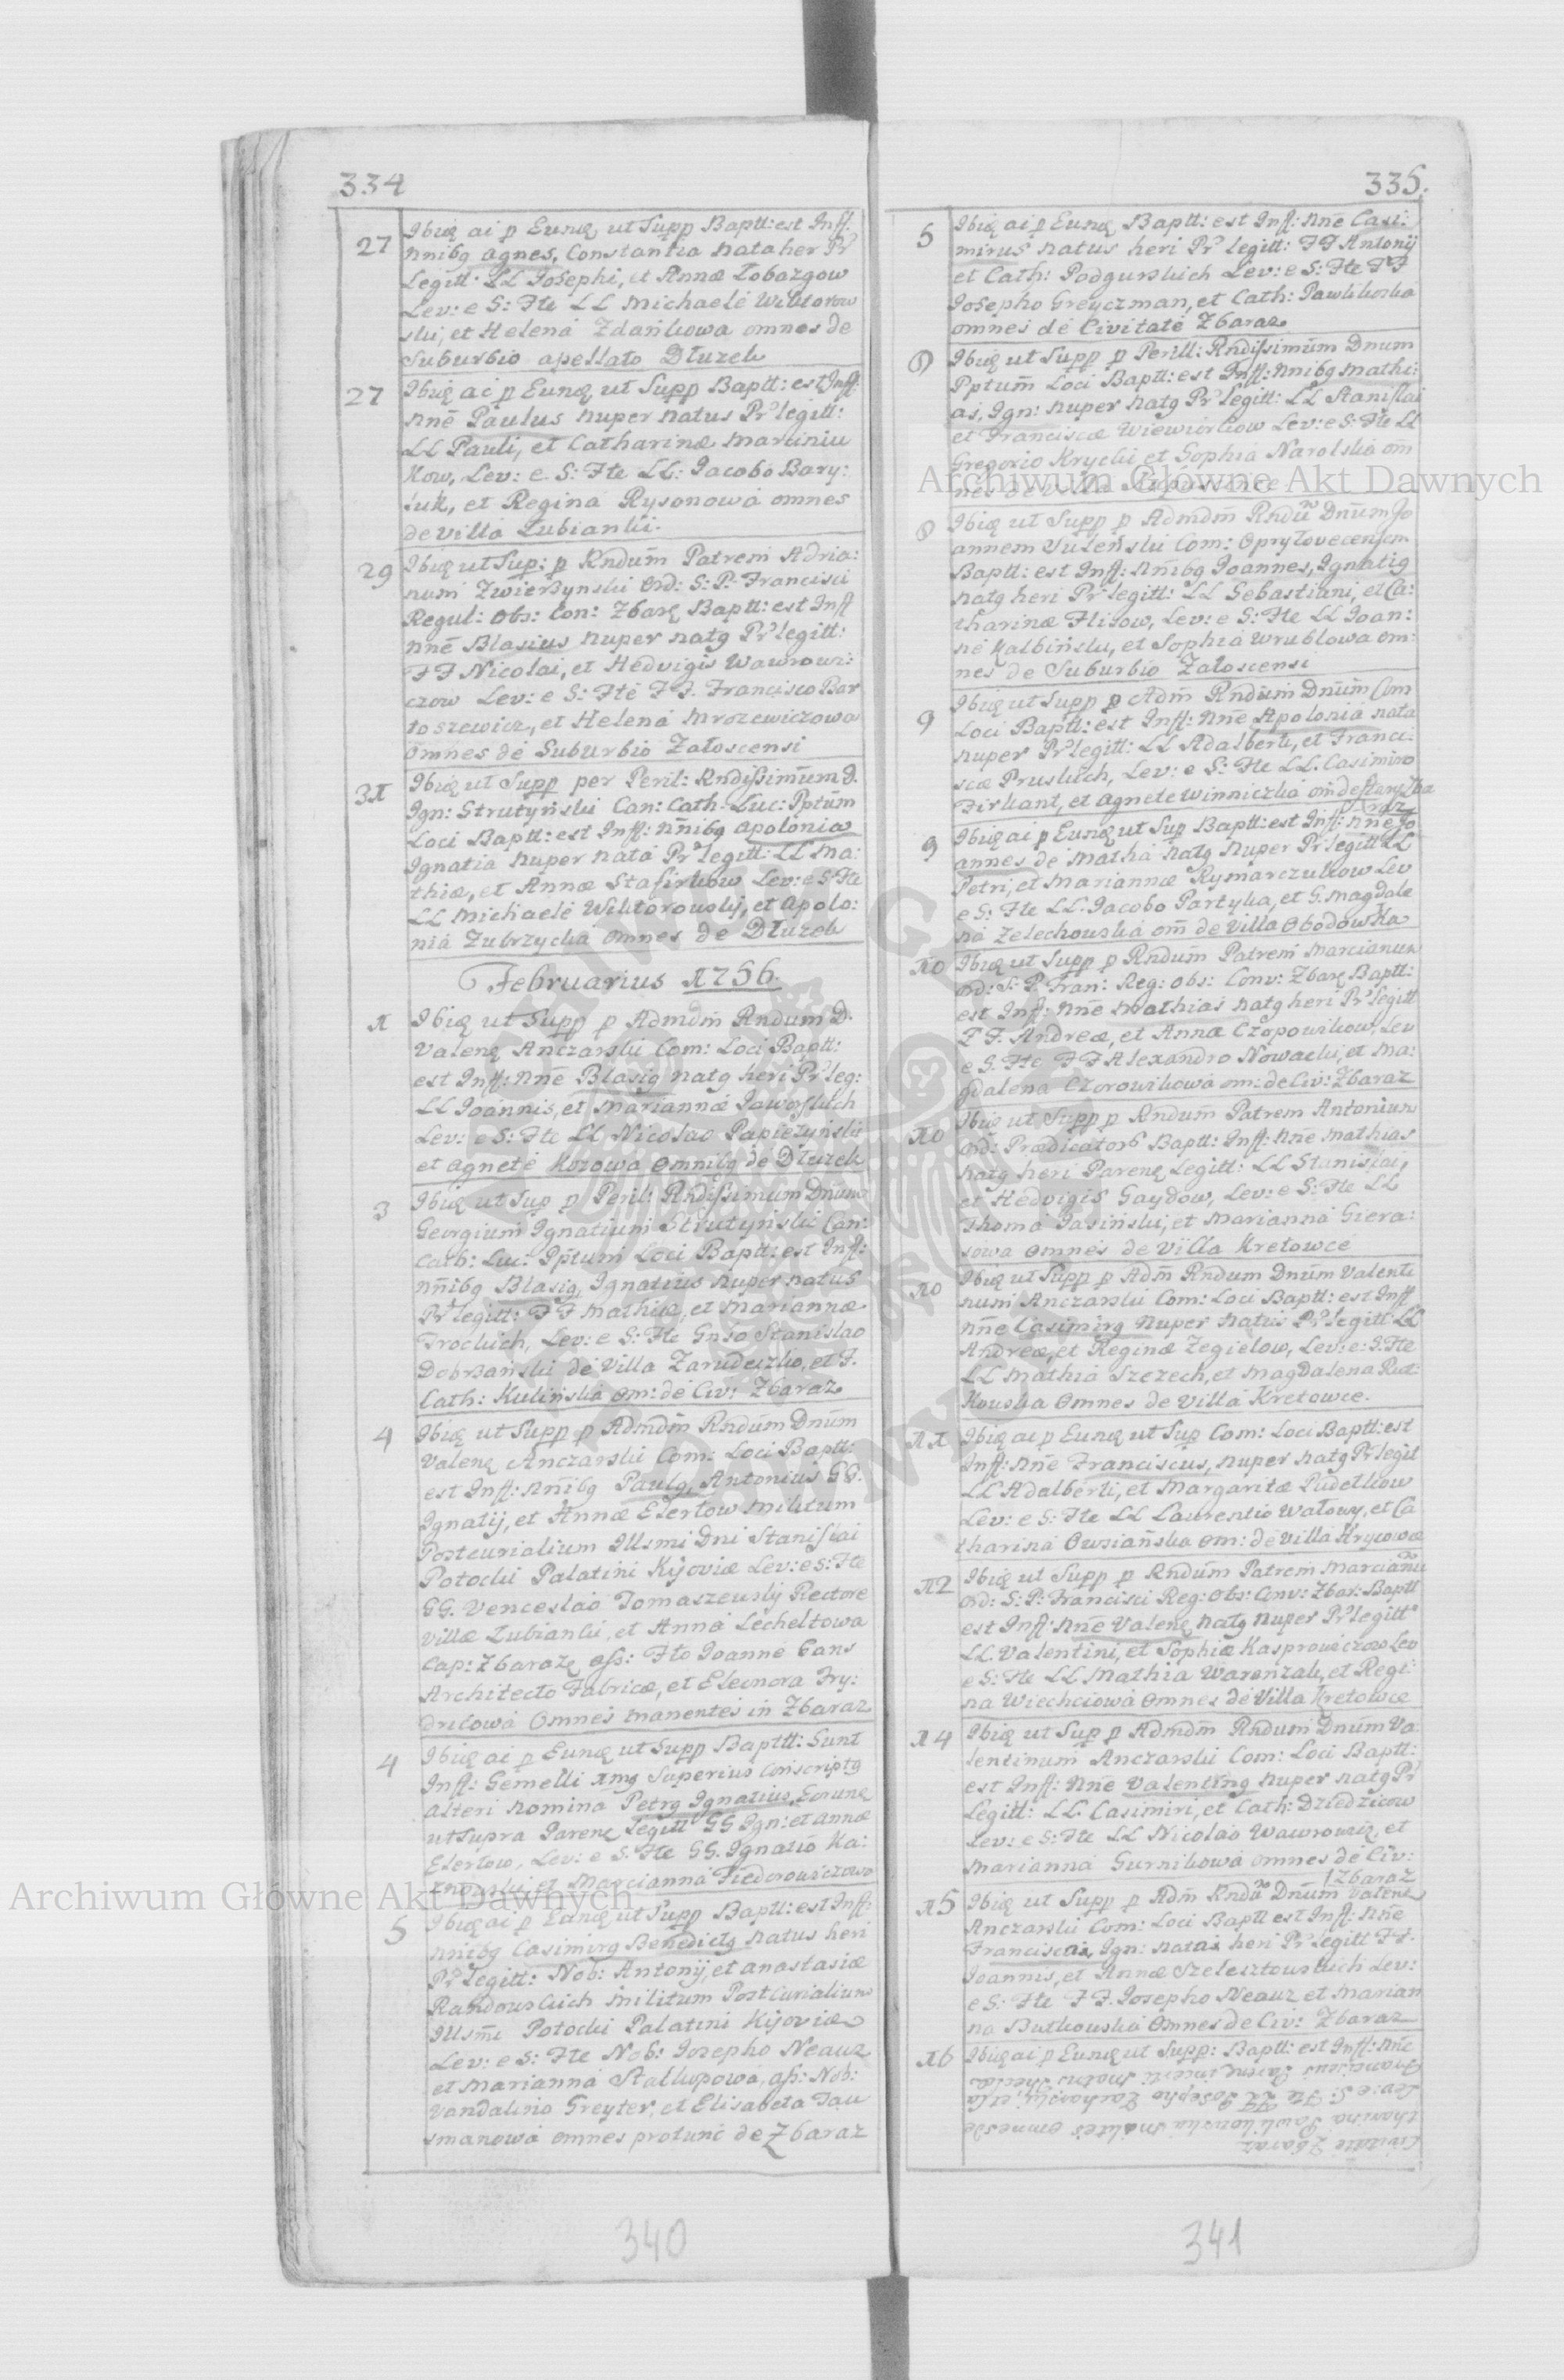 334
27
Ibiq ai p Eunq ut Supp Baptt: est Inff:
nnibg Agnes, Constantia nata her Pr
Legitt: LL Josephi, et Annæ Łobazgow
Lev: e S: Fte LL Michaele Wiktorow
ski, et Helena Zdańkowa omnes de
Suburbio apellato Dłuzek
27
Ibiq ai p Eunq ut Supp Baptt: est Inff:
nne Paulus nuper natus Pr legitt:
LL Pauli, et Catharinæ Marciniu
kow, Lev: e S: Fte LL: Jacobo Bary:
luk, et Regina Rysonowa omnes
de villa Łubianki.
29
Ibiq ut Sup: p Rndum Patrem Adria:
num Zwierzynski Ord: S: P: Francisci
Regul: Obs: Con: Zbarę Baptt: est Inff
nne Blasius nuper natg Pr legitt:
FF Nicolai, et Hedvigis Wawrowi:
czow Lev: e S: Fte FF. Francisco Bar
toszewicz, et Helena Mrozewiczowa
Omnes de Suburbio Załoscensi
31
Ibiq ut Supp per Peril: Rndissimum D.
Ign: Strutyński Can: Cath: Luc: Pptum
Loci Baptt: est Inff: nnibg Apolonia
Ignatia nuper nata Pr legitt: LL Ma:
thiæ, et Annæ Stafirkow Lev: e S: Fte
LL Michaele Wiktorowskj, et Apolo:
nia Zubrzycka Omnes de Dłuzek
Februarius 1756.
1
Ibiq ut Supp p Admdm Rndum D.
Valenq Anczarski Com: Loci Baptt:
est Inff: Nne Blasig natg heri Pr leg:
LL Joannis, et Mariannæ Jaworskich
Lev: e S: Fte LL Nicolao Papieżyński
et Agnete Kozowa Omnibg de Dłuzek
3
Ibiq ut Sup p Peril: Rndissimum Dnum
Georgium Ignatium Strutyński Can:
Cath: Luc: Pptum Loci Baptt: est Inff:
nnibg Blasig, Ignatius nuper natus
Pr legitt: FF Mathiæ, et Mariannæ
Trockich, Lev: e S: Fte Gnso Stanislao
Dobrzański de Villa Zarudeczko, et F.
Cath: Kulińska om: de Civ: Zbaraz
4
Ibiq ut Supp p Admdm Rndum Dnum
Valenq Anczarski Com: Loci Baptt:
est Inff: nnibg Paulg, Antonius GG.
Ignatij, et Annæ Elertow Militum
Postcurialium Illsmi Dni Stanislai
Potocki Palatini Kijoviæ Lev: e S: Fte
GG. Venceslao Tomaszewskj Rectore
Villæ Łubianki, et Anna Lecheltowa
Cap: Zbarażę ass: Fte Joanne Gans
Architecto Fabricæ, et Eleonora Fry:
drilowa Omnes manentes in Zbaraz
4
Ibiq ai p Eunq ut Supp Baptt: Sunt
Inff: Gemelli 1mg Superius Conscriptg
alteri nomina Petrg Ignatius, Eorunq
ut Supra Parenq Legitt GG Ign: et Annæ
Elertow, Lev: e S: Fte GG. Ignatio Ka:
et Marcianna Fiedorowiczowa
5
Ibiq ai p Eunq ut Supp Baptt: est Inff:
nnibg Casimirg Benedictg natus heri
Pr legitt: Nob: Antonij, et Anastasiæ
Randowskich Militum Post Curialium
Illsmi Potocki Palatini Kijoviæ
Lev: e S: Fte Nob: Josepho Neauz
et Marianna Stalkupowa, ass: Nob:
Vandalino Greyter, et Elisabeta Tau
smanowa omnes protunc de Zbaraz
340
335.
5
Ibiq ai p Eunq Baptt: est Inff: nne Casi:
mirus natus heri Pr legitt: FF Antonij
et Cath: Podgurskich Lev: e S: Fte FF
Josepho Greyczman, et Cath: Pawlikoska
omnes de Civitate Zbaraz
8
Ibiq ut Supp p Perill: Rndissimum Dnum
Pptum Loci Baptt: est Inff: nnibg Mathi:
as, Ign: nuper natg Pr legitt: LL Stanislai
et Franciscæ Wiewiorkow Lev: e S: Fte LL
Gregorio Krycki et Sophia Narolska om
nes de Villa
8
Ibiq ut Supp p Admdm Rndum Dnum Jo
annem Suleński Com: Opryłovecensem
Baptt: est Inff: nnibg Joannes, Ignatig
natg heri Pr legitt: LL Sebastiani, et Ca:
tharinæ Flisow, Lev: e S: Fte LL Joan:
ne Kalbińsky, et Sophia Wrublowa om:
nes de Suburbio Załoscensi
9
Ibiq ut Supp p Adm Rndum Dnum Com
Loci Baptt: est Inff: nne Apolonia nata
nuper Pr legitt: LL Adalberti, et Franci:
scæ Pruskich, Lev: e S: Fte LL. Casimiro
Firkant, et Agnete Winniczka om de Stary Zba
raz
9
Ibiq ai p Eunq ut Sup Baptt: est Inff: nne Jo
annes de Matha natg nuper Pr legitt LL
Petri, et Mariannæ Rymarczukow Lev
e S: Fte LL. Jacobo Partyka, et G. Magdale
na Zelechowska om de Villa Obodowka
10
Ibiq ut Supp p Rndum Patrem Marcianum
Ord: S: P. Fran: Reg: Obs: Conv: Zbarę Baptt:
est Inff: nne Mathias natg heri Pr legitt
FF. Andreæ, et Annæ Czopowikow, Lev
e S: Fte FF Alexandro Nowacki, et Ma:
gdalena Czorowikowa om: de Civ: Zbaraz
10
Ibiq ut Supp p Rndum Patrem Antonium
Ord: Prædicatorg Baptt: Inff: nne Mathias
natg heri Parenq Legitt: LL Stanislai,
et Hedvigis Gaydow, Lev: e S: Fte LL
Thoma Jasiński, et Marianna Giera:
sowa omnes de Villa Kretowce
10
Ibiq ut Supp p Adm Rndum Dnum Valenti
num Anczarski Com: Loci Baptt: est Inff
nne Casimirg nuper natus Pr legitt LL
Andreæ, et Reginæ Zegielow, Lev: e: S: Fte
LL Mathia Szczech, et Magdalena Rut:
kowska Omnes de Villa Kretowce.
11
Ibiq ai p Eunq ut Sup Com: Loci Baptt: est
Inff: nne Franciscus, nuper natg Pr legit
LL Adalberti, et Margaritæ Pudełkow
Lev: e S: Fte LL Laurentio Watowy, et Ca
tharina Owsiańska om: de Villa Hrycowce
12
Ibiq ut Supp p Rndum Patrem Marcianu
Ord: S: P: Francisci Reg: Obs: Conv: Zbar: Baptt
est Inff: nne Valenq natg nuper Pr legitt
LL. Valentini, et Sophiæ Kasprowiczow Lev
e S: Fte LL Mathia Warenzak, et Regi:
na Wiechciowa Omnes de Villa Kretowce
14
Ibiq ut Sup p Admdm Rndum Dnum Va:
lentinum Anczarski Com: Loci Baptt:
est Inff: nne Valenting nuper natg Pr
Legitt: LL. Casimiri, et Cath: Dziedzicow
Lev: e S: Fte LL Nicolao Wawrowicz, et
Marianna Gurnikowa omnes de Civ:
Zbaraz
15
Ibiq ut Supp p Adm Rndu Dnum Valenq
Anczarski Com: Loci Baptt est Inff: nne
Franciscai, Ign: natai heri Pr legitt FF.
Joannis, et Annæ Szelesztowskich Lev:
e S: Fte FF. Josepho Neauz et Marian
na Butkowska Omnes de Civ: Zbaraz
16
Ibiq ai p Eunq ut Supp: Baptt: est Inff: nne
Franciscus Parent incerti Matris
Lev: e S: Fte LL Josepho Zacharski, et Ca
tharina Pawlikowska omnes de
Civitate Zbaraz
341
Archiwum Główne Akt Dawnych
Archiwum Główne Akt Dawnych